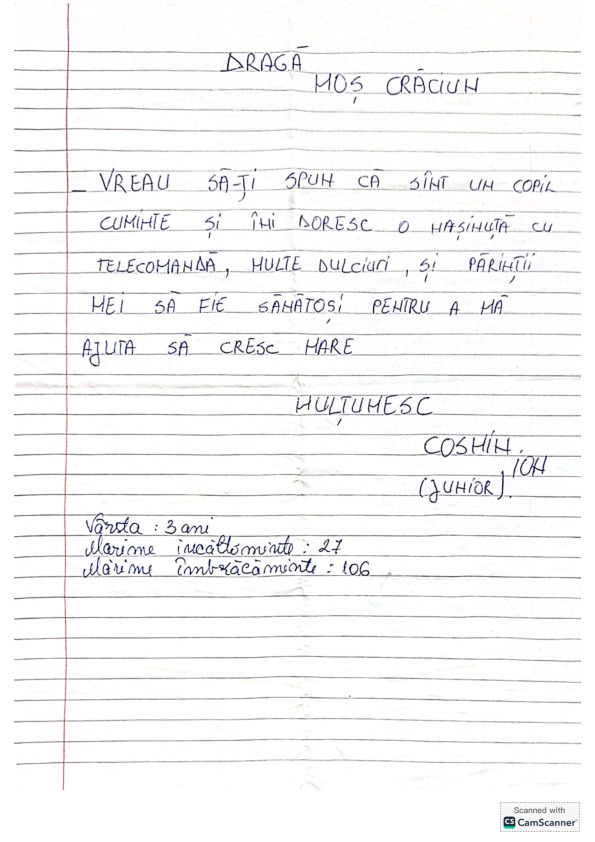 DRAGĂ
MOȘ CRĂCIUN
_ VREAU SĂ-ȚI SPUN CĂ SÎNT UN COPIL
CUMINTE ȘI ÎMI DORESC O MAȘINUȚĂ CU
TELECOMANDĂ, MULTE DULCIURI, ȘI PĂRINȚII
MEI SĂ FIE SĂNĂTOȘI PENTRU A MĂ
AJUTA SĂ CRESC MARE
MULȚUMESC
COSMIN.
(JUNIOR), ION
Vârsta : 3 ani
Marime incăltaminte : 27
Marime îmbrăcăminte : 106
Scanned with
CS CamScanner